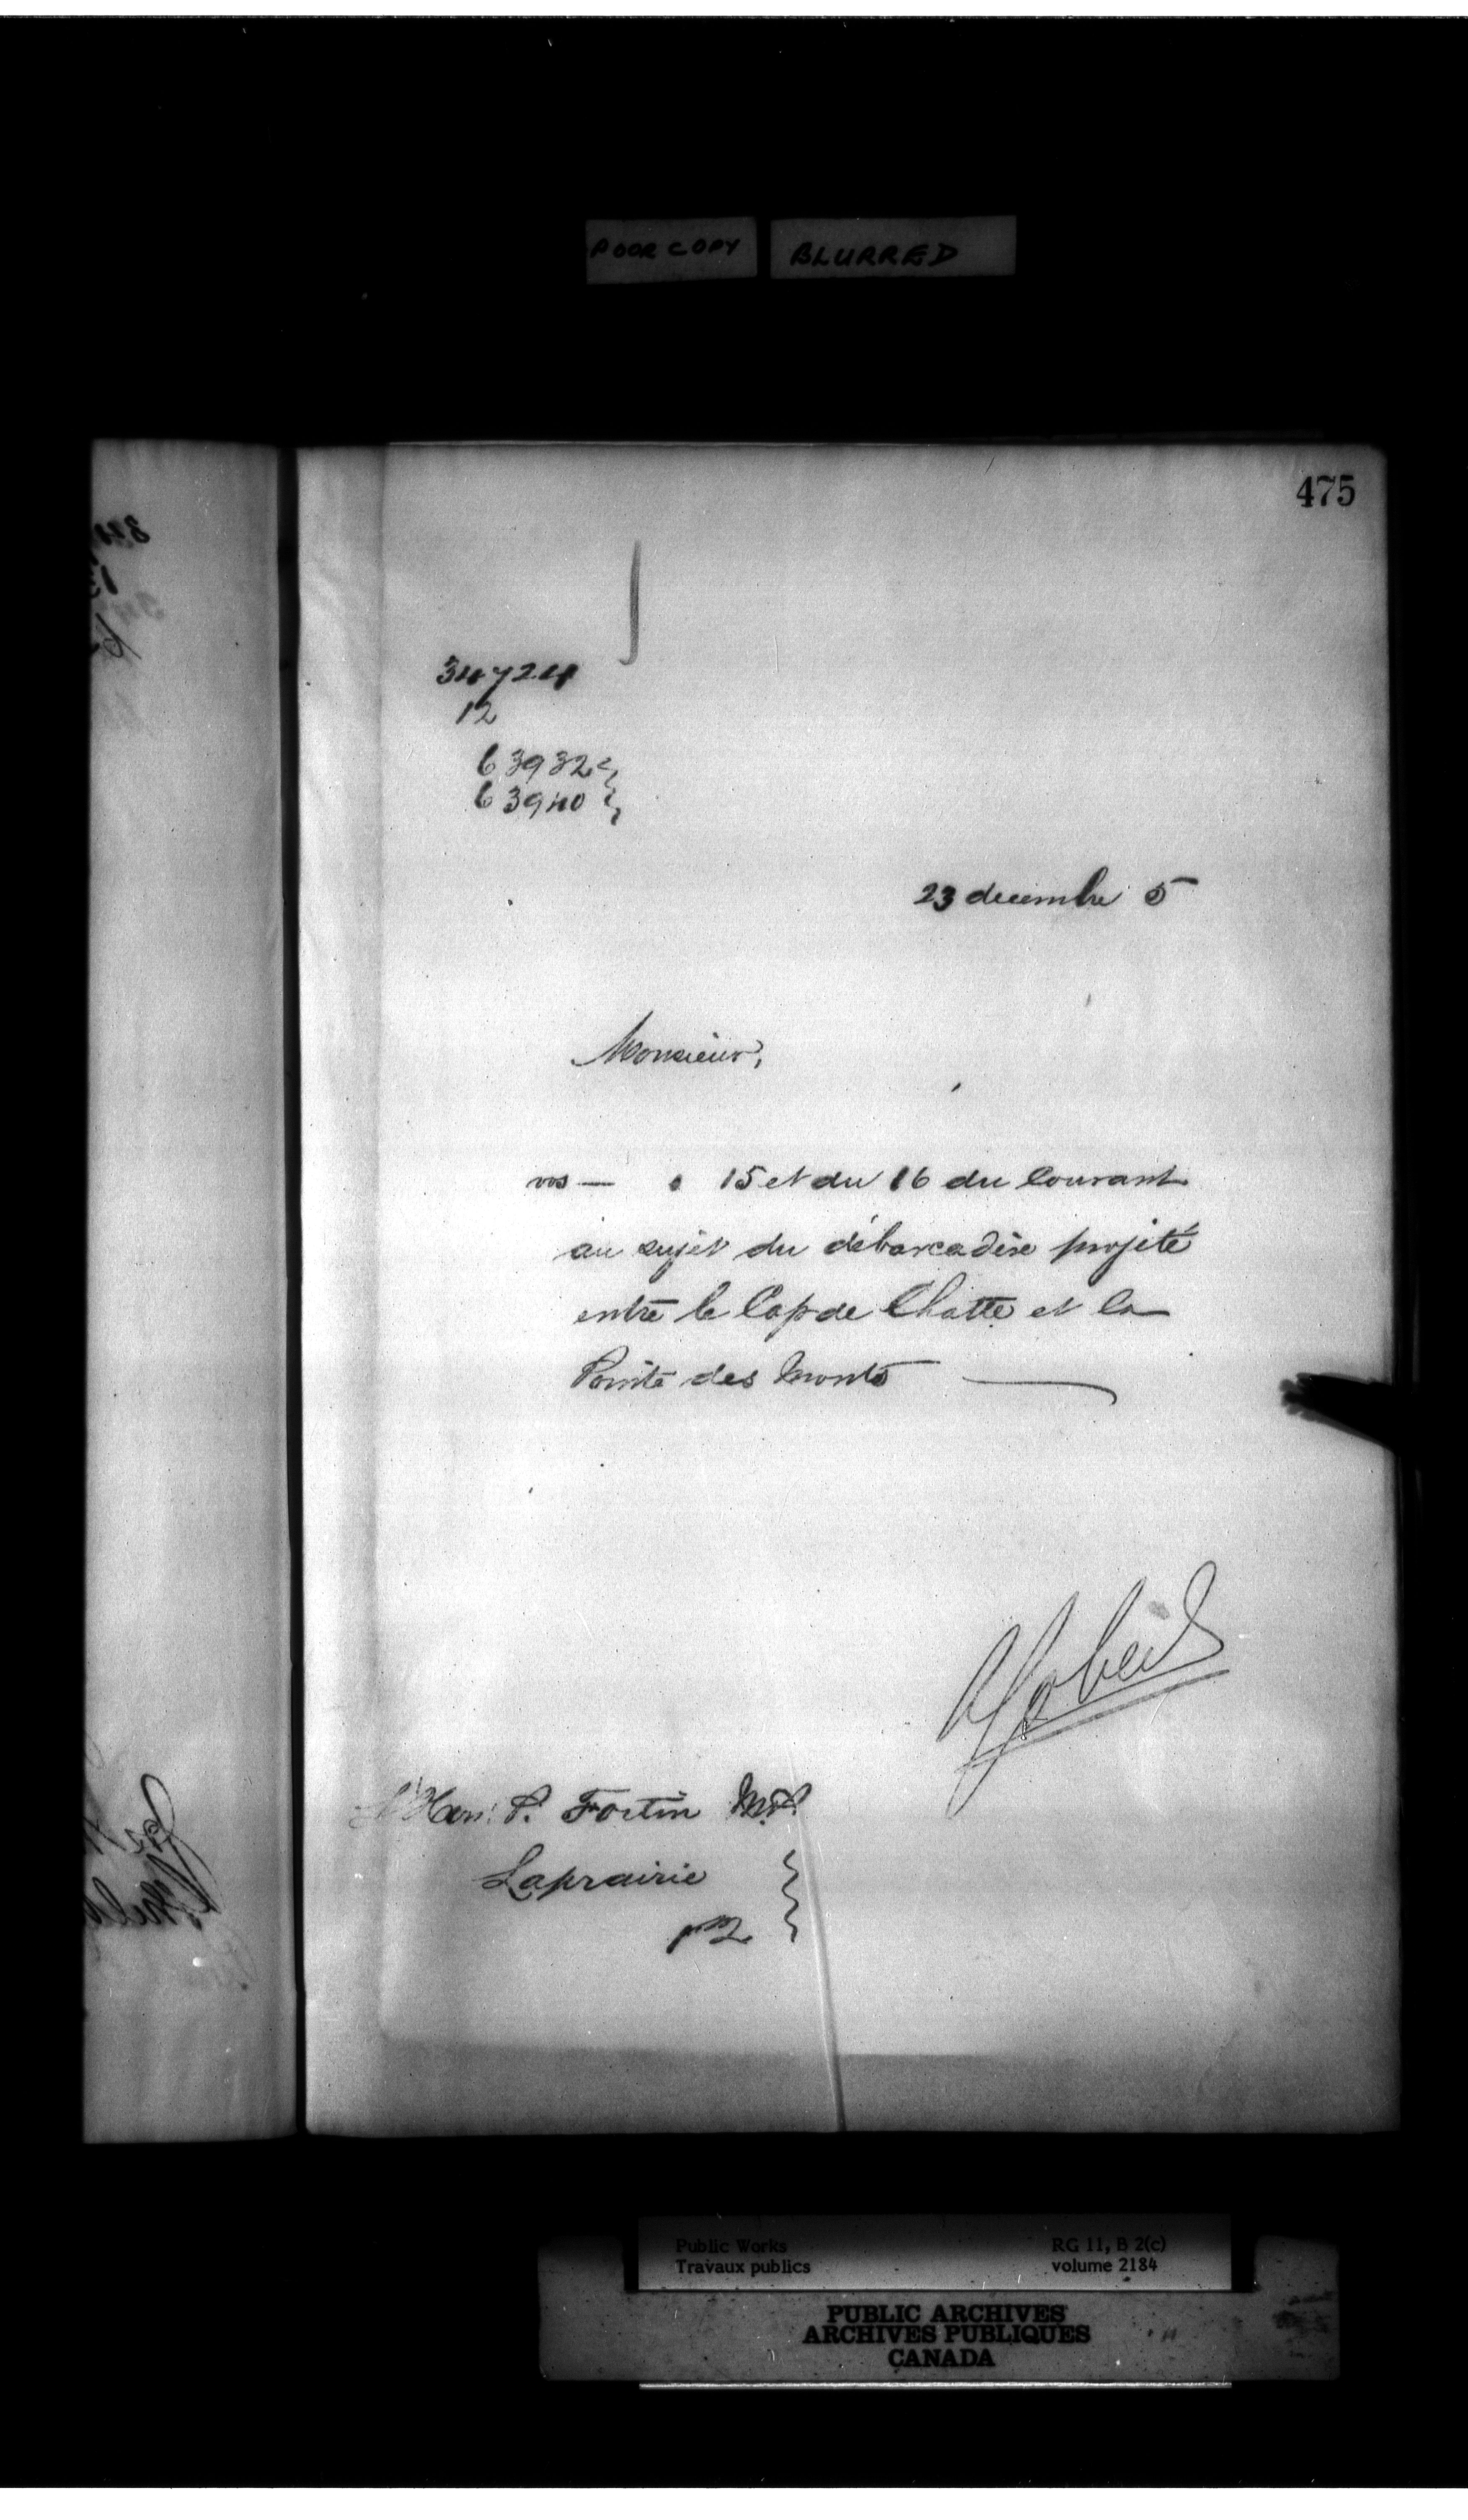 POOR COPY BLURRED
475
34724
12
63932
63940
23 decembre 5
Monsieur,
vos — s 15 et du 16 du Courant
au sujet du débarcadère projeté
entre le Cap de Chatte et la
Pointe des Monts —
GobeiL
L'Hon. P. Fortin M.P.
Laprairie
PQ
Public Works RG 11, B 2(c)
Travaux publics volume 2184
PUBLIC ARCHIVES
ARCHIVES PUBLIQUES
CANADA